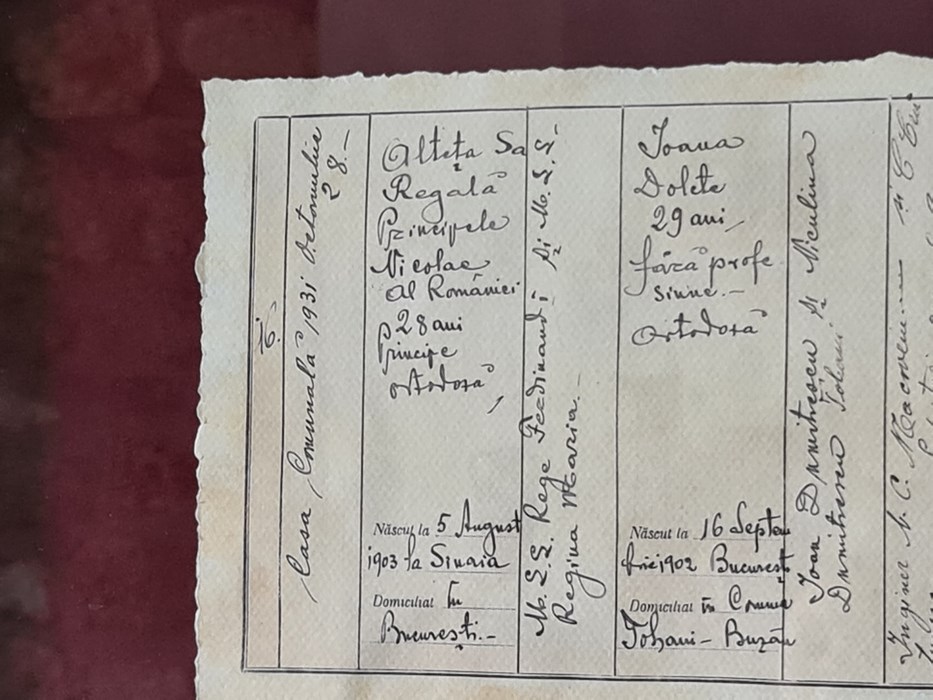 6.
Casa Comunală 1931 Octombrie
28.-
Alteța Sa
Regală
Principele
Nicolae
al României
28 ani
Principe
ortodoxă
Născut la 5 August
1903 la Sinaia
Domiciliat în
București.-
M.S.S. Rege Ferdinand I și M.S.S.
Regina Maria.-
Ioana
Dolete
29 ani
fără profe
siune.-
Ortodoxă
Născut la 16 Septem
brie 1902 București
Domiciliat în Comuna
Tohani - Buzău
Ioan Dumitrescu și Niculina
Dumitrescu Tohani
Inginer N. C. Macovei